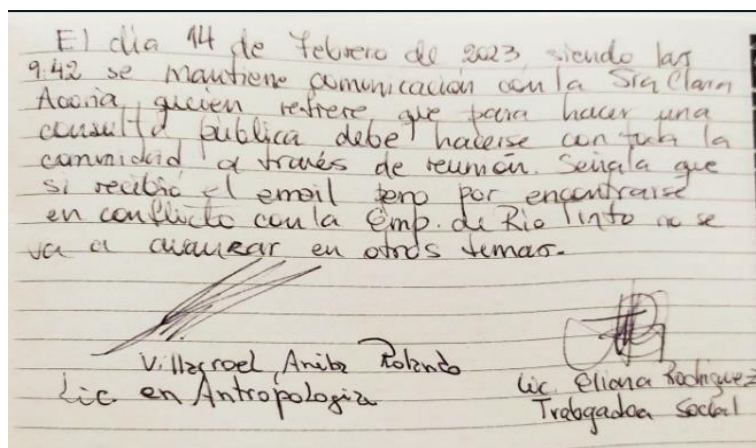 El día 14 de Febrero de 2023, siendo las
9:42 se mantiene comunicación con la Sra Clara
Acoria, quien refiere que para hacer una
consulta pública debe hacerse con toda la
comunidad a través de reunión. Señala que
si recibió el email pero por encontrarse
en conflicto con la Emp. de Rio Tinto no se
va a avanzar en otros temas.
Villarroel, Anibal Rolando
Lic en Antropología
Lic. Eliana Rodriguez
Trabajadora Social